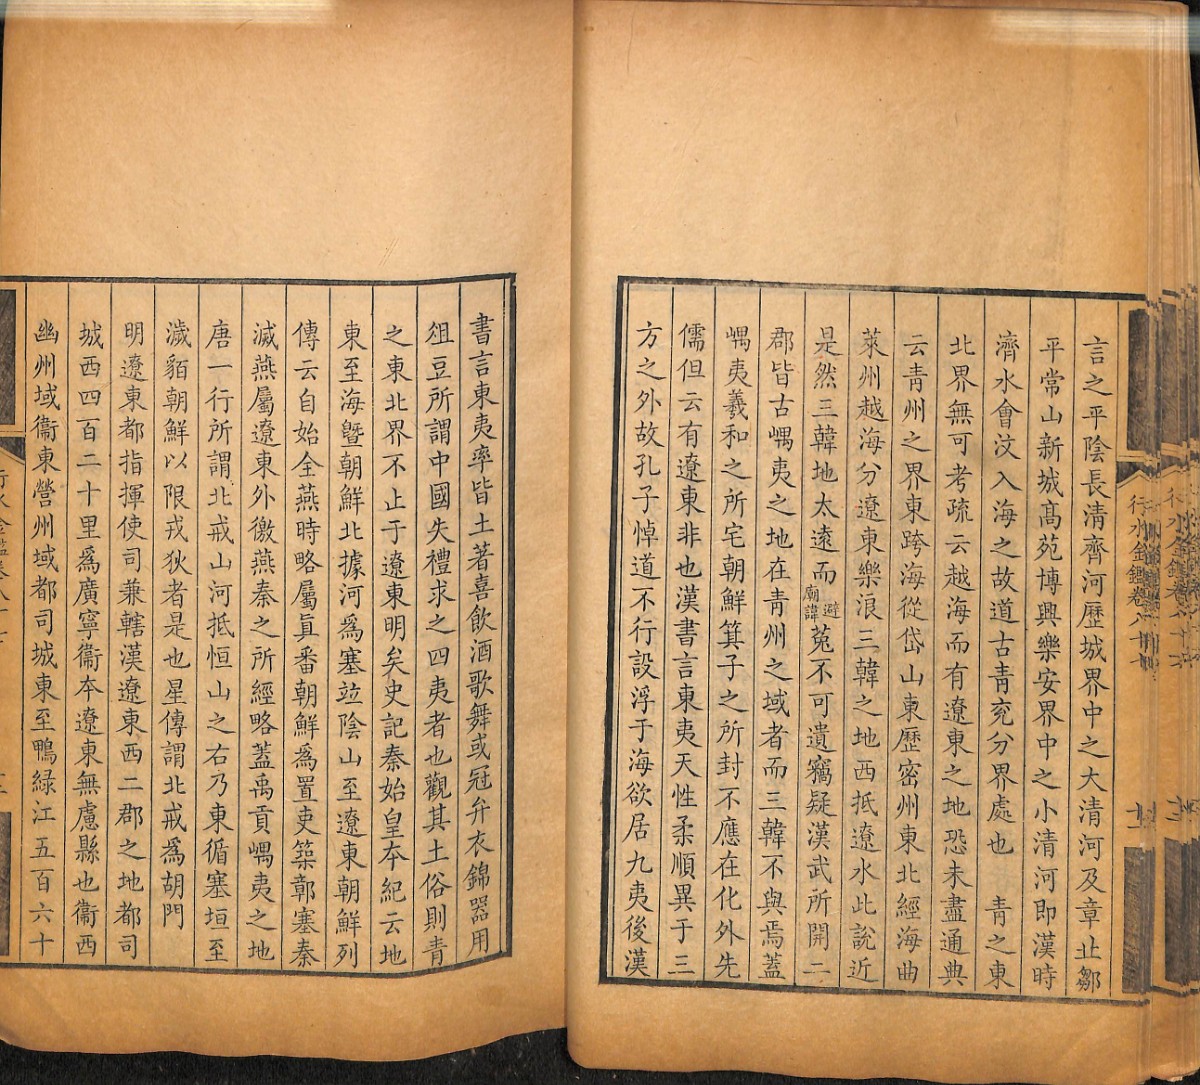 言之平陰長清齊河歷城界中之大清河及章丘鄒
平常山新城高苑博興樂安界中之小清河即漢時
濟水會汶入海之故道古青兖分界處也　青之東
北界無可考疏云越海而有遼東之地恐未盡通典
云青州之界東跨海從岱山東歷密州東北經海曲
萊州越海分遼東樂浪三韓之地西抵遼水此說近
是然三韓地太遠而避廟諱菟不可遺竊疑漢武所開二
郡皆古嵎夷之地在青州之域者而三韓不與焉蓋
嵎夷羲和之所宅朝鮮箕子之所封不應在化外先
儒但云有遼東非也漢書言東夷天性柔順異于三
方之外故孔子悼道不行設浮于海欲居九夷後漢
書言東夷率皆土著喜飲酒歌舞或冠弁衣錦器用
俎豆所謂中國失禮求之四夷者也觀其土俗則青
之東北界不止于遼東明矣史記秦始皇本紀云地
東至海曁朝鮮北據河爲塞竝陰山至遼東朝鮮列
傳云自始全燕時略屬眞番朝鮮爲置吏築鄣塞秦
滅燕屬遼東外徼燕秦之所經略蓋禹貢嵎夷之地
唐一行所謂北戒山河抵恒山之右乃東循塞垣至
濊貊朝鮮以限戎狄者是也星傳謂北戒爲胡門
明遼東都指揮使司兼轄漢遼東西二郡之地都司
城西四百二十里爲廣寧衞本遼東無慮縣也衞西
幽州域衞東營州域都司城東至鴨綠江五百六十
行水金鑑卷八十七